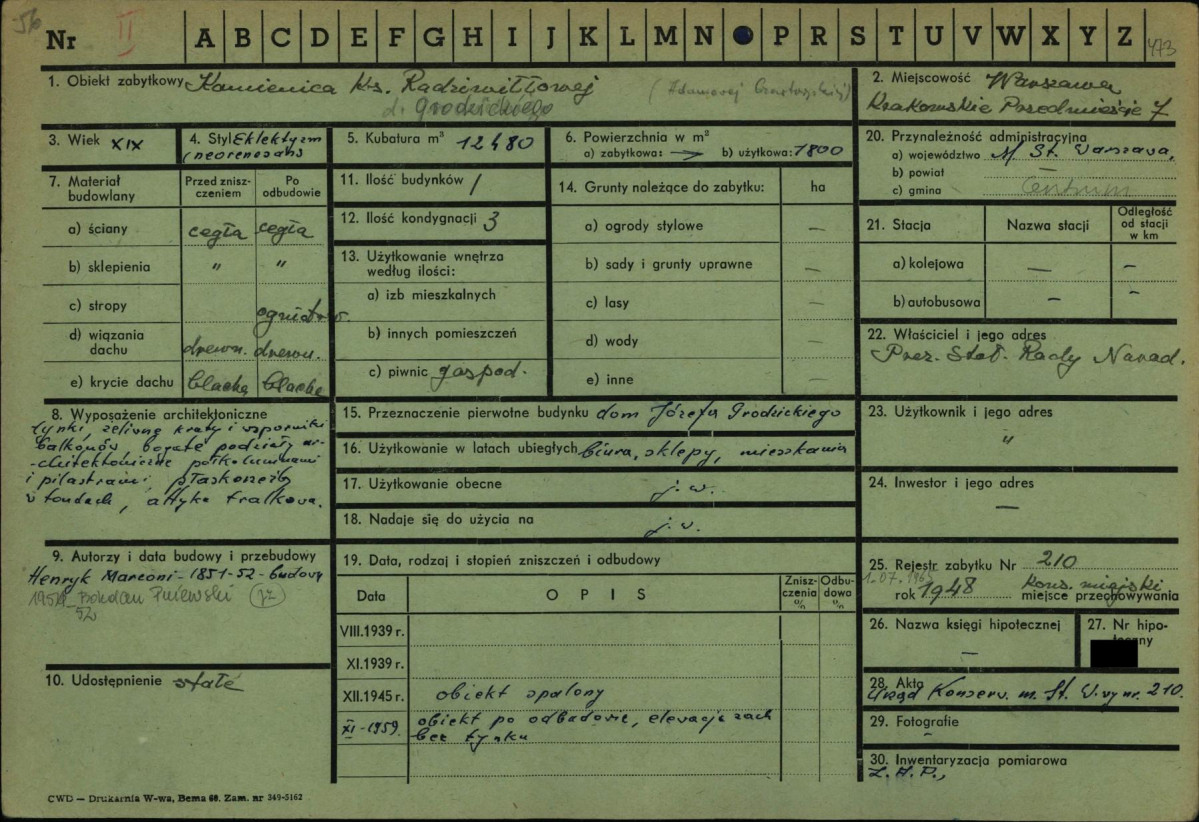 56
Nr II A B C D E F G H I J K L M N P R S T U V W X Y Z 473
1. Obiekt zabytkowy Kamienica ks. Radziwiłłowej
d. Grodzickiego
2. Miejscowość Warszawa
Krakowskie Przedmieście 7
3. Wiek XIX
4. Styl Eklektyzm
(neorenesans
5. Kubatura m³ 12480
6. Powierzchnia w m²
a) zabytkowa: b) użytkowa: 1800
20. Przynależność administracyjna
a) województwo M. St. Warszawa,
b) powiat —
c) gmina Centrum
7. Materiał budowlany
Przed zniszczeniem
Po odbudowie
a) ściany cegła cegła
b) sklepienia " "
c) stropy ogniotrw.
d) wiązania dachu drewn. drewn.
e) krycie dachu blacha blacha
11. Ilość budynków 1
12. Ilość kondygnacji 3
13. Użytkowanie wnętrza
według ilości:
a) izb mieszkalnych
b) innych pomieszczeń
c) piwnic gospod.
14. Grunty należące do zabytku: ha
a) ogrody stylowe —
b) sady i grunty uprawne —
c) lasy —
d) wody —
e) inne —
21. Stacja
Nazwa stacji
Odległość od stacji w km
a) kolejowa — —
b) autobusowa — —
22. Właściciel i jego adres
Prez. Stoł. Rady Narod.
8. Wyposażenie architektoniczne
tynki, żeliwne kraty i wsporniki
balkonów bogate podziały ar-
-chitektoniczne półkolumnami
i pilastrami, płaskorzeźb
w tondach, attyka tralkowa.
15. Przeznaczenie pierwotne budynku dom Józefa Grodzickiego
16. Użytkowanie w latach ubiegłych biura, sklepy, mieszkania
17. Użytkowanie obecne j.w.
18. Nadaje się do użycia na j.w.
23. Użytkownik i jego adres
"
24. Inwestor i jego adres
—
9. Autorzy i data budowy i przebudowy
Henryk Marconi - 1851-52 - budowy
Bohdan Pniewski
52
19. Data, rodzaj i stopień zniszczeń i odbudowy
Data OPIS Zniszczenia % Odbudowa %
VIII.1939 r.
XI.1939 r.
XII.1945 r. obiekt spalony
XI-1959. obiekt po odbudowie, elewacja zach
bez tynku
25. Rejestr zabytku Nr 210
1.07.1965
rok 1948 Kons. miejski
miejsce przechowywania
26. Nazwa księgi hipotecznej
—
27. Nr hipotecz­ny
10. Udostępnienie stałe
28. Akta
Urząd Konserw. m. St. W-wy nr. 210.
29. Fotografie
–
30. Inwentaryzacja pomiarowa
Z.A.P.,
CWD — Drukarnia W-wa, Bema 60. Zam. nr 349-5162